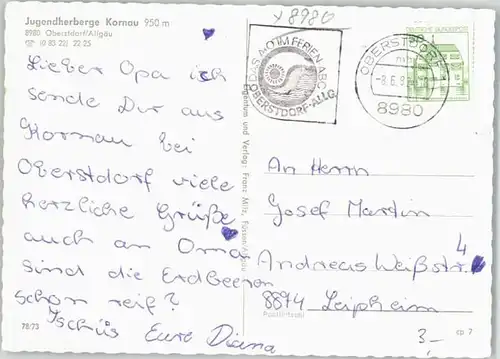 x 8980
Jugendherberge Kornau 950 m
8980 Oberstdorf/Allgäu
☎ (0 83 22) 22 25
Lieber Opa ich
sende Dir aus
Kornau bei
Oberstdorf viele
herzliche Grüße
auch an Oma
sind die Erdbeeren
schon reif?
Tschüs Eure Diana
78/73
Eigentum und Verlag: Franz Milz, Füssen/Allgäu
DAS A-O IM FERIEN-ABC
OBERSTDORF-ALLG.
OBERSTDORF
8980
DEUTSCHE BUNDESPOST
An Herrn
Josef Martin
Andreas Weißstr. 4
8874 Leipheim
Postleitzahl
3.-
cp 7